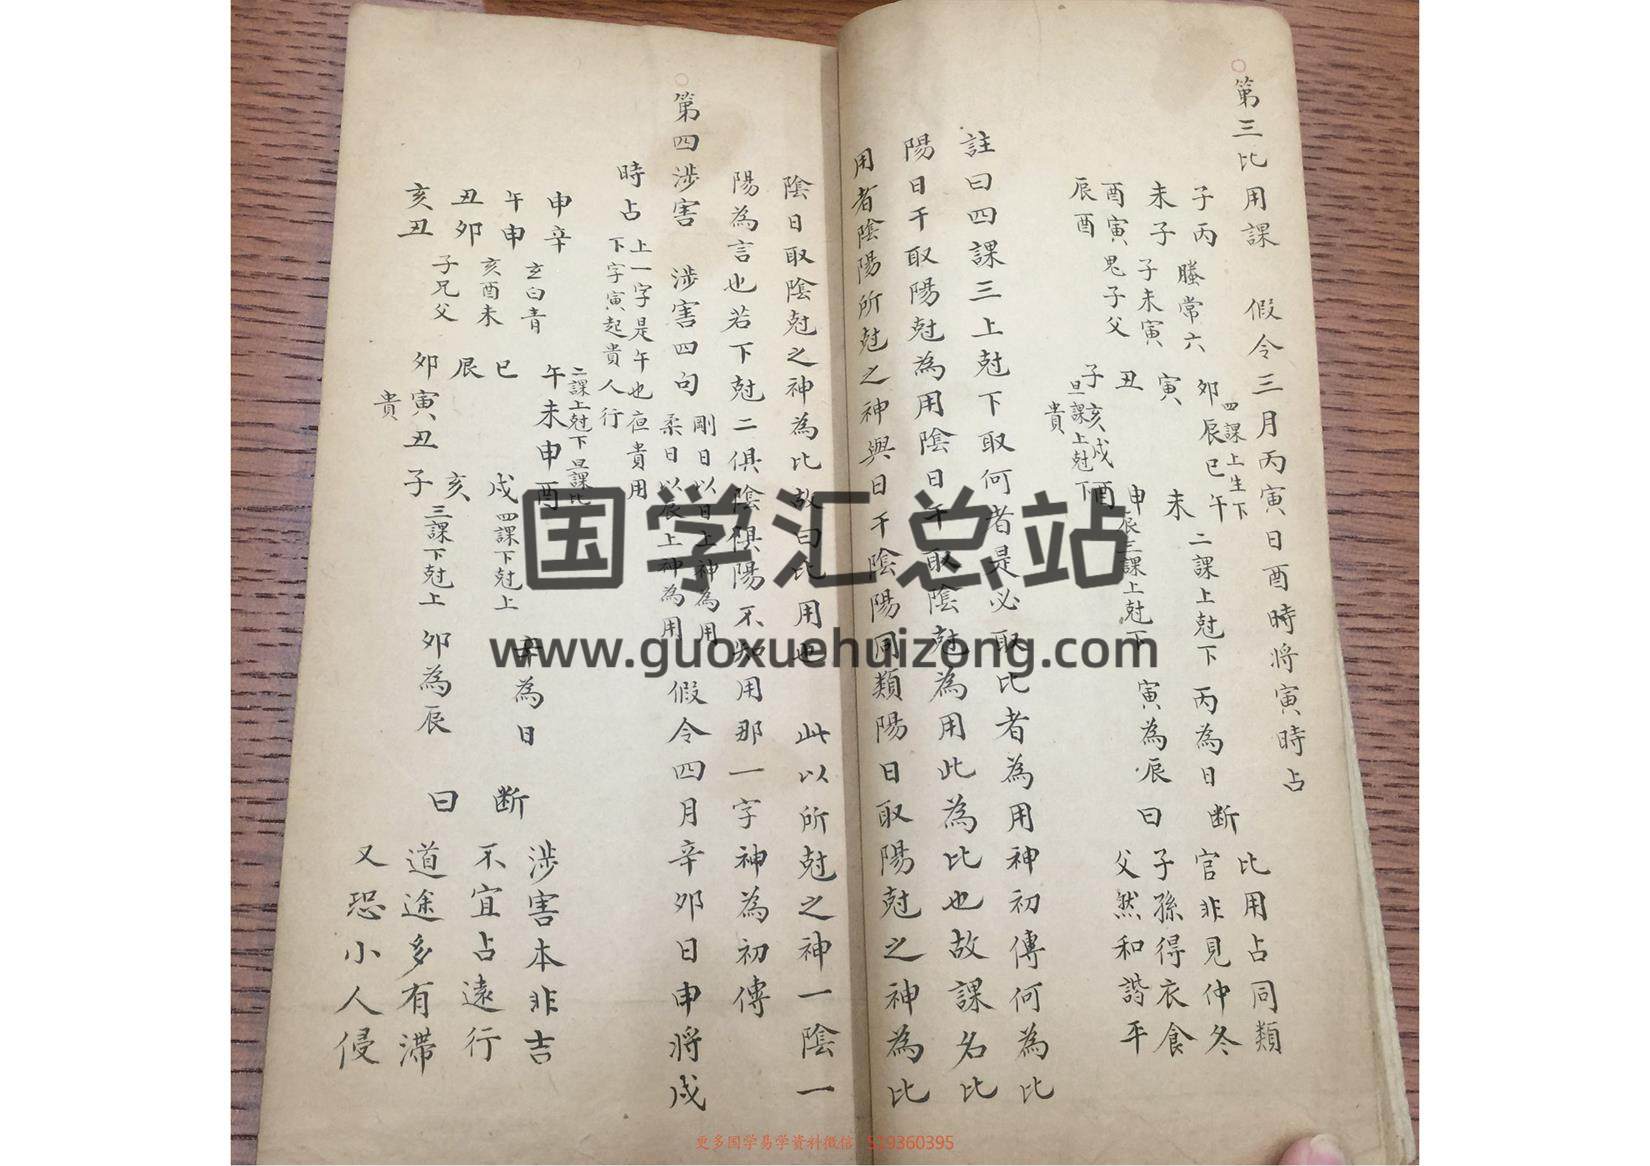 第三比用課 假令三月丙寅日酉時将寅時占
子丙 螣常六
未子 子未寅
酉寅 鬼子父
辰酉
卯辰巳午
寅 未
丑 申
子亥戌酉
旦貴
四課上生下
二課上尅下
辰三課上尅下
一課上尅下
丙為日
寅為辰
断曰
比用占同類
官非見仲冬
子孫得衣食
父然和諧平
註曰四課三上尅下取何者是必取比者為用神初傳何為比
陽日干取陽尅為用陰日干取陰尅為用此為比也故課名比
用者陰陽所尅之神與日干陰陽同類陽日取陽尅之神為比
陰日取陰尅之神為比故曰比用也 此以所尅之神一陰一
陽為言也若下尅二俱陰俱陽不知用那一字神為初傳
第四涉害 涉害四句 剛日以日上神為用
柔日以辰上神為用 假令四月辛卯日申将戌
時占 上一字是午也夜貴用
下字寅起貴人行
申辛 玄白青
午申 亥酉未
丑卯 子兄父
亥丑
午未申酉
巳 戌
辰 亥
卯寅丑子
貴
二課上尅下
四課下尅上
三課下尅上
辛為日
卯為辰
断曰
涉害本非吉
不宜占遠行
道途多有滯
又恐小人侵
国学汇总站
www.guoxuehuizong.com
更多国学易学资料微信 519360395